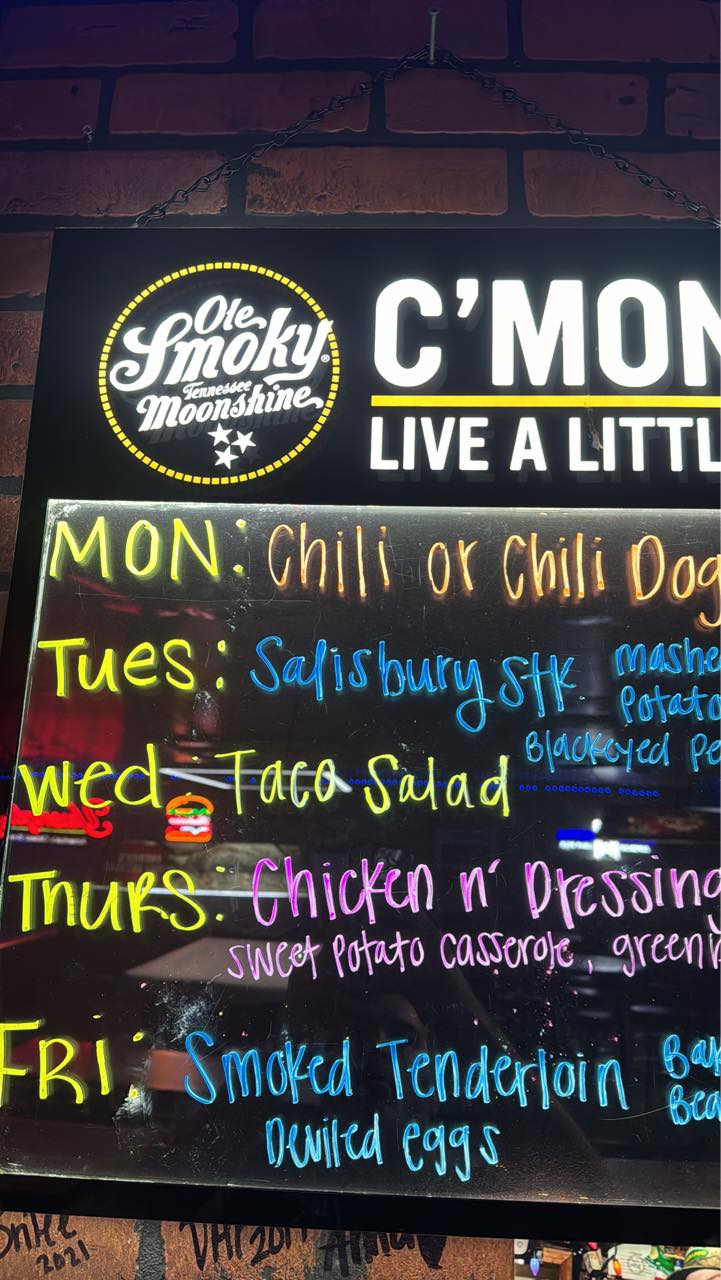 Ole
Smoky®
Tennessee
Moonshine
C'MON
LIVE A LITTL
MON: Chili or Chili Dog
Tues: Salisbury Stk. mashe
Potato
Blackeyed Pe
Wed. Taco Salad
Thurs: Chicken n' Dressing
sweet potato casserole, green
FRI: Smoked Tenderloin Bak
Bea
Deviled eggs
2021